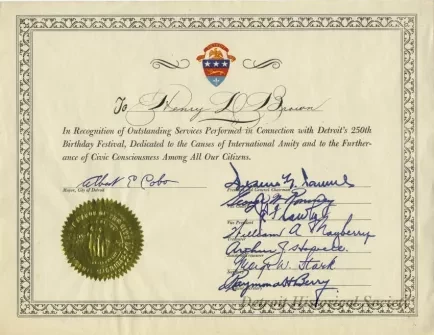 To Henry D. Brown
In Recognition of Outstanding Services Performed in Connection with Detroit's 250th
Birthday Festival, Dedicated to the Causes of International Amity and to the Further-
ance of Civic Consciousness Among All Our Citizens.
Albert E. Cobo
Mayor, City of Detroit
General Chairman
George W. Romney
Vice President
William A. Mayberry
Treasurer
George W. Stark
Raymond H. Berry
Detroit Historical Society